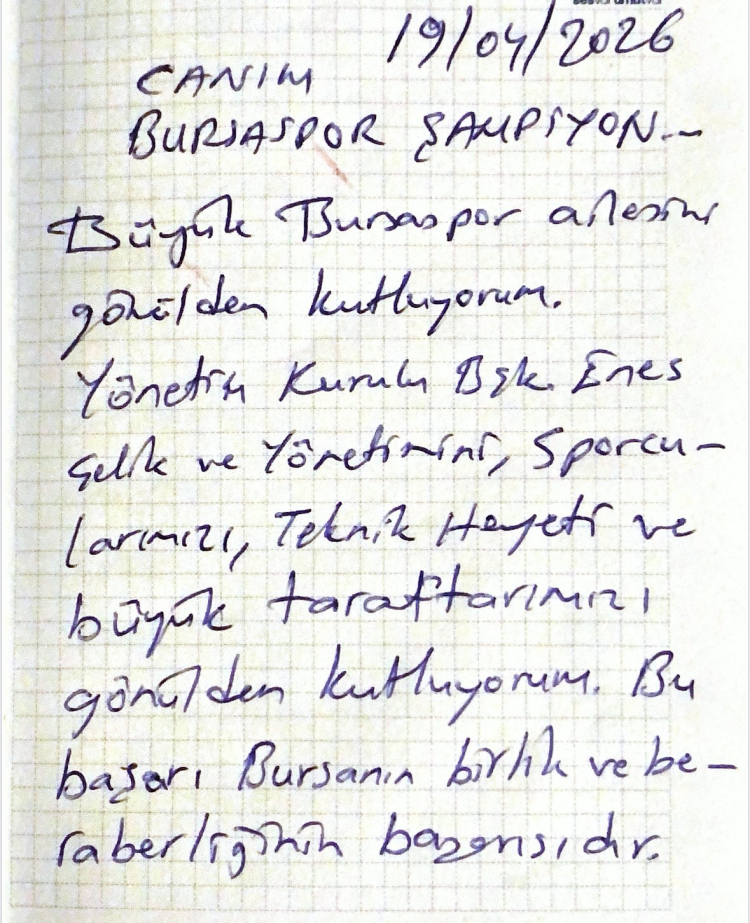 19/04/2026
CANIM
BURSASPOR ŞAMPİYON.-
Büyük Bursaspor ailesini
gönülden kutluyorum.
Yönetim Kurulu Bşk. Enes
Çelik ve Yönetimini, Sporcu-
larımızı, Teknik Heyeti ve
büyük taraftarımızı
gönülden kutluyorum. Bu
başarı Bursanın birlik ve be-
raberliğinin başarısıdır.